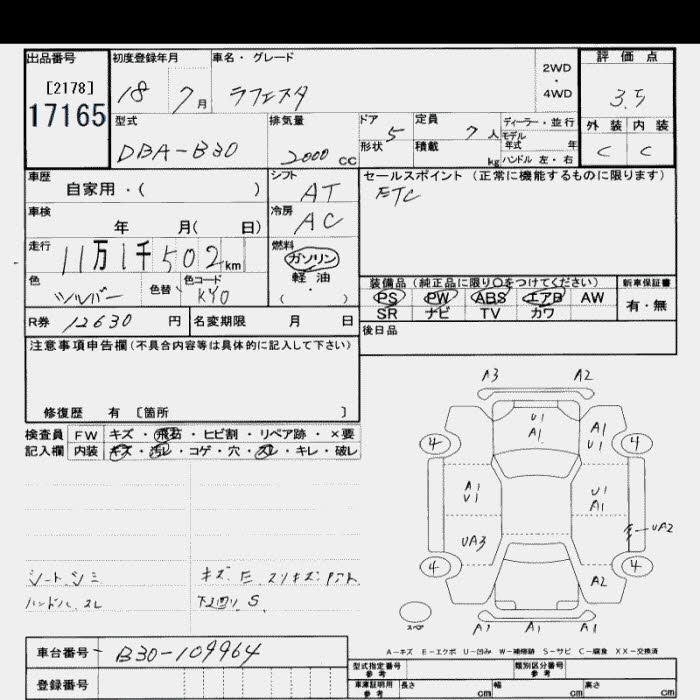 出品番号
[2178]
17165
初度登録年月
18 7月
車名・グレード
ラフェスタ
2WD
・
4WD
評価点
3.5
外装 内装
C C
型式
DBA-B30
排気量
2000 cc
ドア 5
形状
定員 7人
積載 kg
ディーラー・並行
モデル年式 年
ハンドル 左・右
車歴
自家用・( )
シフト
AT
セールスポイント(正常に機能するものに限ります)
ETC
車検
年 月( 日)
冷房
AC
走行
11万1千502km
燃料
ガソリン
軽油
( ・ )
色
シルバー
色替
色コード
KY0
装備品(純正品に限り○をつけてください)
PS PW ABS エアB AW
SR ナビ TV カワ
新車保証書
有・無
R券 12630 円
名変期限 月 日
後日品
注意事項申告欄(不具合内容等は具体的に記入して下さい)
修復歴 有 [箇所 ]
検査員 FW キズ・飛石・ヒビ割・リペア跡・×要
記入欄 内装 キズ・汚レ・コゲ・穴・スレ・キレ・破レ
A3 A2
U1
A1
A1
U1
4 4
A1
U1
U1
A1
UA2
UA3
4 4
A2
スペア
A1 A1 A1
シート、シミ
ハンドル、スレ
キズ、E、スリキズ、
下廻り、S
A-キズ E-エクボ U-凹み W-補修跡 S-サビ C-腐食 XX-交換済
車台番号 B30-109964
登録番号
型式指定番号
参考
類別区分番号
参考
車庫証明用
参考
長さ cm 幅 cm 高さ cm